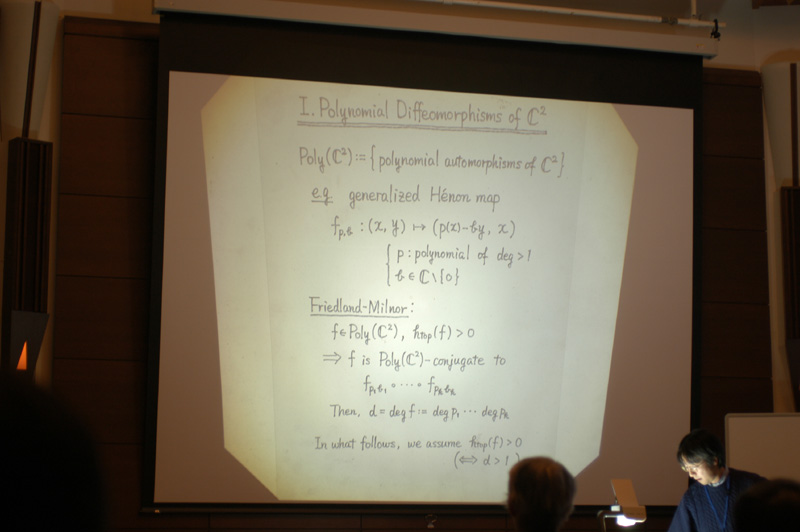 I. Polynomial Diffeomorphisms of ℂ²
Poly(ℂ²) := {polynomial automorphisms of ℂ²}
e.g. generalized Hénon map
f_{p,b} : (x, y) ↦ (p(x)-by, x)
{ p : polynomial of deg > 1
b ∈ ℂ \ {0}
Friedland-Milnor :
f ∈ Poly(ℂ²), h_{top}(f) > 0
⇒ f is Poly(ℂ²)-conjugate to
f_{p₁,b₁} ∘ ⋯ ∘ f_{pₖ,bₖ}
Then, d = deg f := deg p₁ ⋯ deg pₖ
In what follows, we assume h_{top}(f) > 0
(⇔ d > 1)